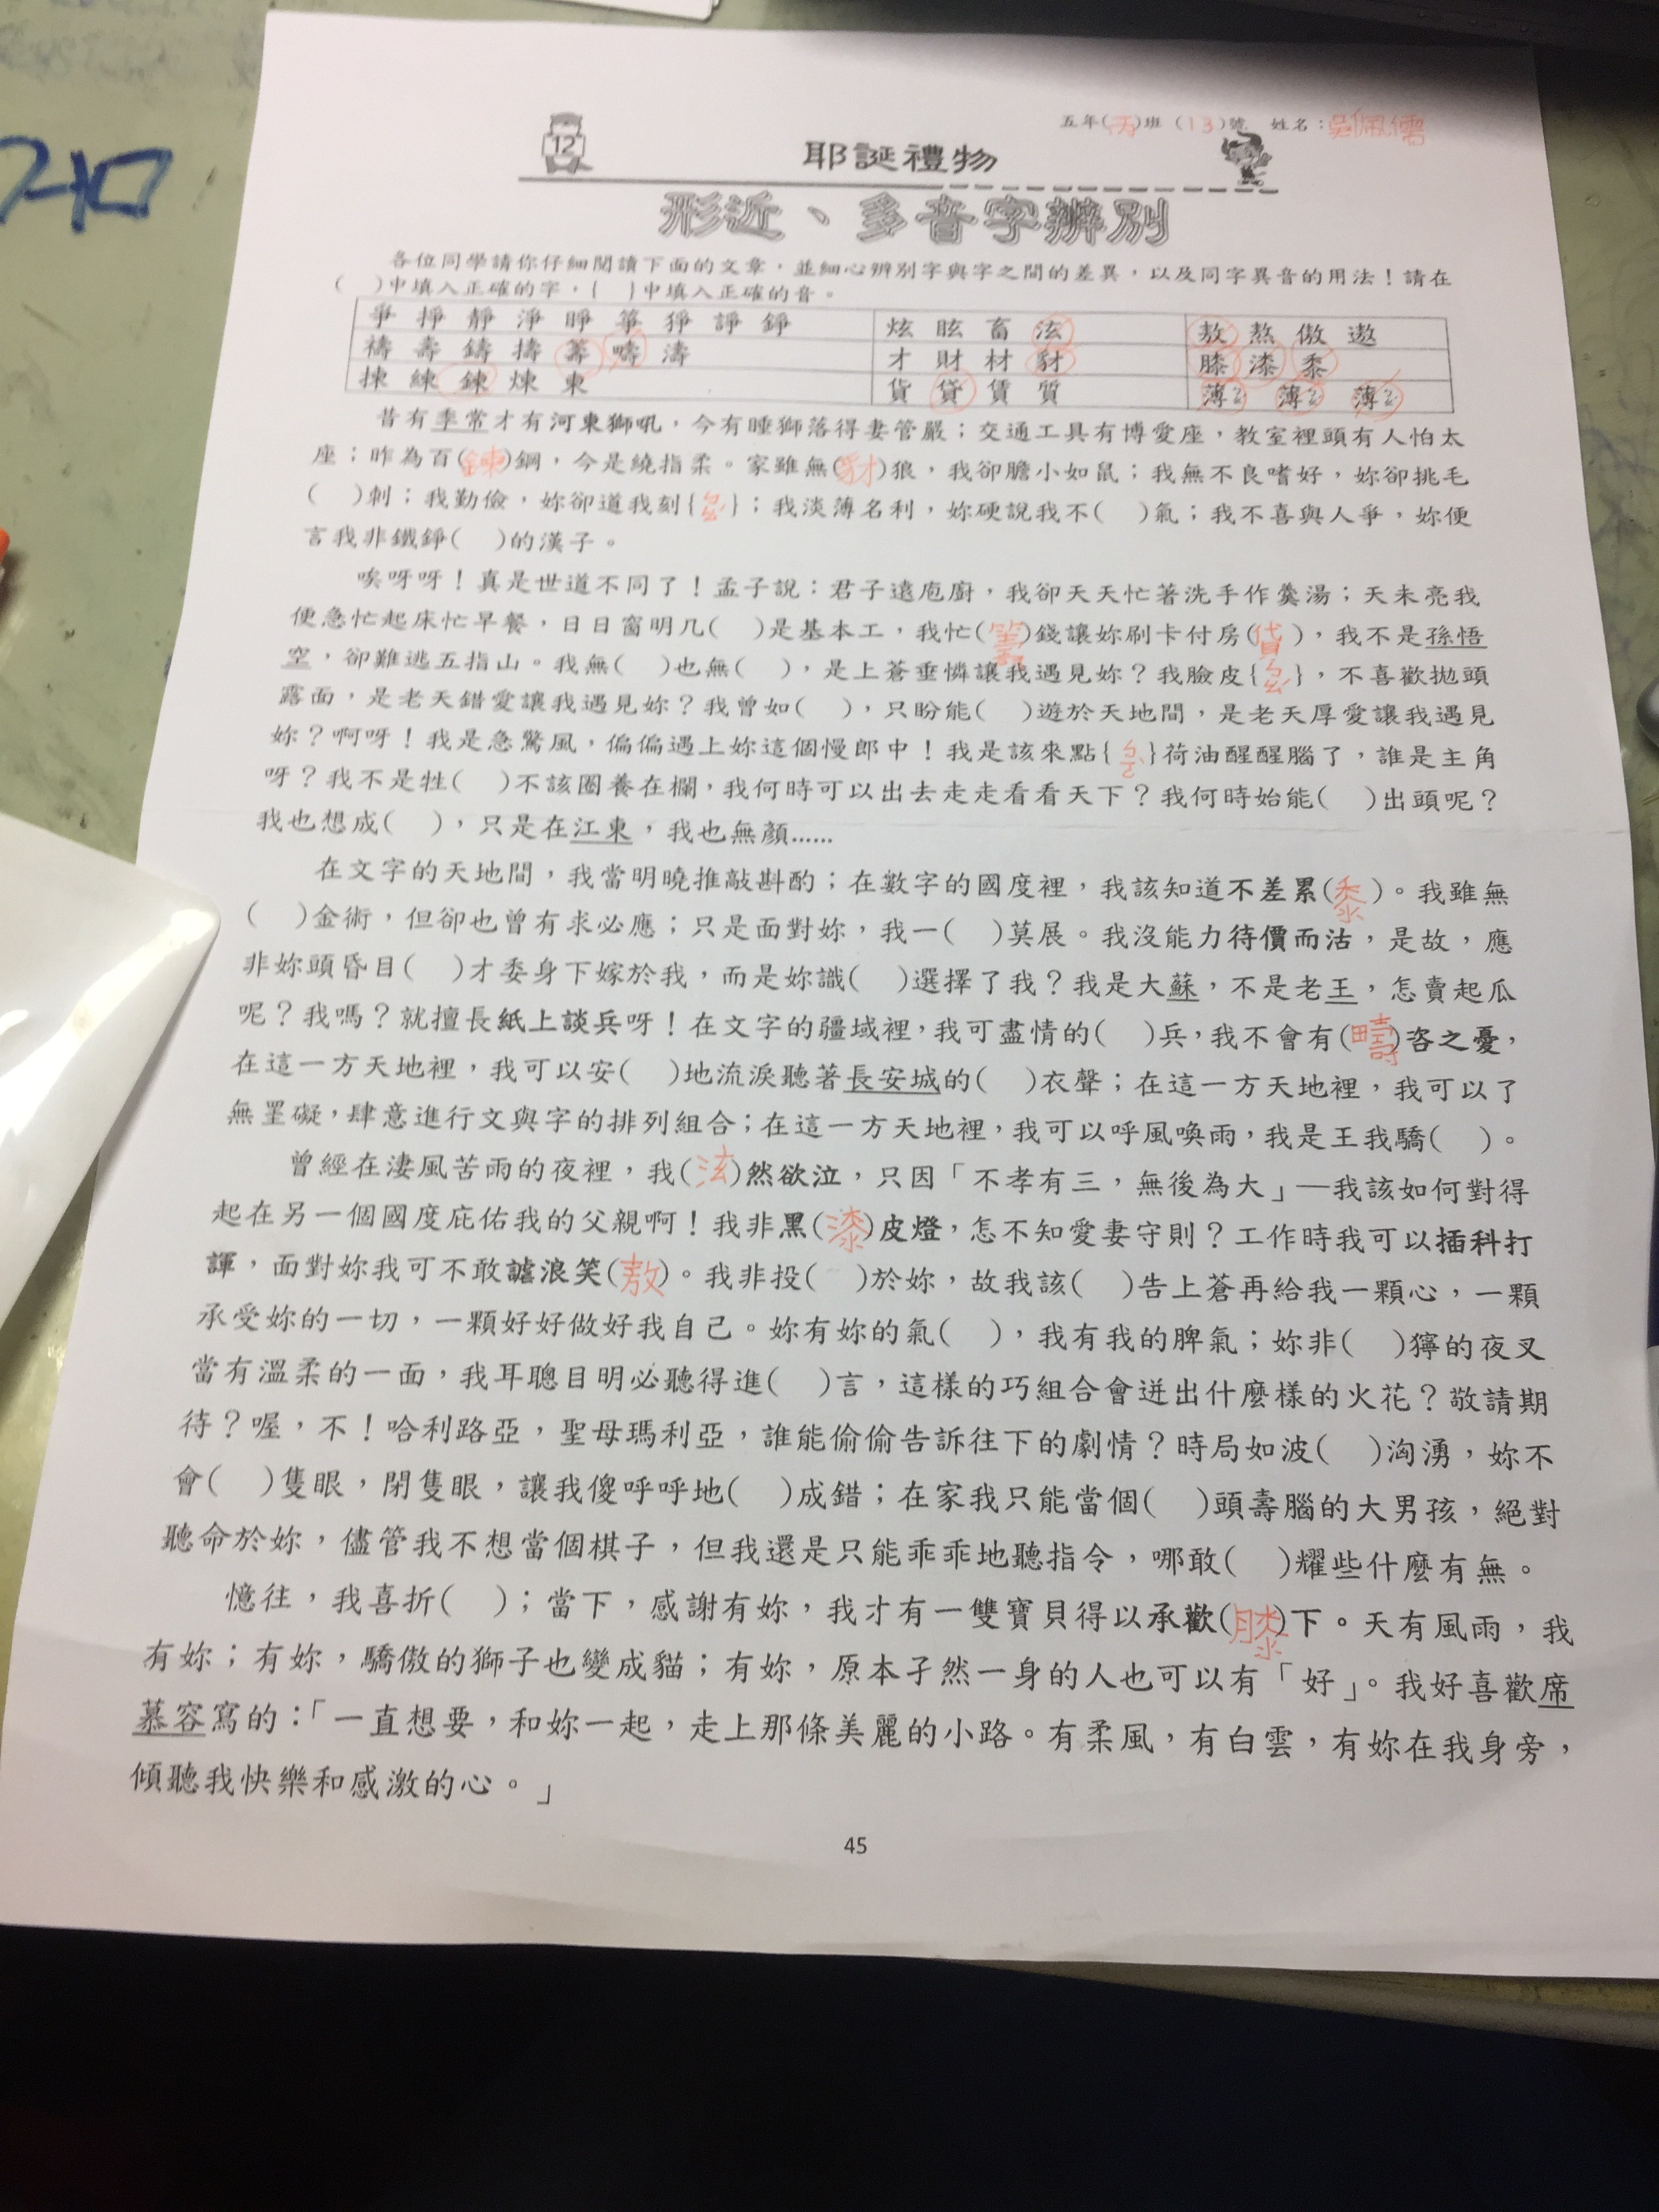 五年(丙)班(13)號 姓名:吳佩儒
12
耶誕禮物
形近、多音字辨別
各位同學請你仔細閱讀下面的文章,並細心辨別字與字之間的差異,以及同字異音的用法!請在
( )中填入正確的字,{ }中填入正確的音。
爭 掙 靜 淨 睜 箏 猙 諍 錚 炫 眩 畜 泫 敖 熬 傲 遨
禱 壽 鑄 擣 籌 疇 濤 才 財 材 豺 膝 漆 黍
揀 練 鍊 煉 東 貨 貸 賃 質 薄 薄 薄
昔有季常才有河東獅吼,今有睡獅落得妻管嚴;交通工具有博愛座,教室裡頭有人怕太
座;昨為百(鍊)鋼,今是繞指柔。家雖無(豺)狼,我卻膽小如鼠;我無不良嗜好,妳卻挑毛
( )刺;我勤儉,妳卻道我刻{ㄅㄛˊ};我淡薄名利,妳硬說我不( )氣;我不喜與人爭,妳便
言我非鐵錚( )的漢子。
唉呀呀!真是世道不同了!孟子說:君子遠庖廚,我卻天天忙著洗手作羹湯;天未亮我
便急忙起床忙早餐,日日窗明几( )是基本工,我忙(籌)錢讓妳刷卡付房(貸),我不是孫悟
空,卻難逃五指山。我無( )也無( ),是上蒼垂憐讓我遇見妳?我臉皮{ㄅㄠˊ},不喜歡拋頭
露面,是老天錯愛讓我遇見妳?我曾如( ),只盼能( )遊於天地間,是老天厚愛讓我遇見
妳?啊呀!我是急驚風,偏偏遇上妳這個慢郎中!我是該來點{ㄅㄛˋ}荷油醒醒腦了,誰是主角
呀?我不是牲( )不該圈養在欄,我何時可以出去走走看看天下?我何時始能( )出頭呢?
我也想成( ),只是在江東,我也無顏……
在文字的天地間,我當明曉推敲斟酌;在數字的國度裡,我該知道不差累(黍)。我雖無
( )金術,但卻也曾有求必應;只是面對妳,我一( )莫展。我沒能力待價而沽,是故,應
非妳頭昏目( )才委身下嫁於我,而是妳識( )選擇了我?我是大蘇,不是老王,怎賣起瓜
呢?我嗎?就擅長紙上談兵呀!在文字的疆域裡,我可盡情的( )兵,我不會有(疇)咨之憂,
在這一方天地裡,我可以安( )地流淚聽著長安城的( )衣聲;在這一方天地裡,我可以了
無罣礙,肆意進行文與字的排列組合;在這一方天地裡,我可以呼風喚雨,我是王我驕( )。
曾經在淒風苦雨的夜裡,我(泫)然欲泣,只因「不孝有三,無後為大」—我該如何對得
起在另一個國度庇佑我的父親啊!我非黑(漆)皮燈,怎不知愛妻守則?工作時我可以插科打
諢,面對妳我可不敢謔浪笑(敖)。我非投( )於妳,故我該( )告上蒼再給我一顆心,一顆
承受妳的一切,一顆好好做好我自己。妳有妳的氣( ),我有我的脾氣;妳非( )獰的夜叉
當有溫柔的一面,我耳聰目明必聽得進( )言,這樣的巧組合會迸出什麼樣的火花?敬請期
待?喔,不!哈利路亞,聖母瑪利亞,誰能偷偷告訴往下的劇情?時局如波( )洶湧,妳不
會( )隻眼,閉隻眼,讓我傻呼呼地( )成錯;在家我只能當個( )頭壽腦的大男孩,絕對
聽命於妳,儘管我不想當個棋子,但我還是只能乖乖地聽指令,哪敢( )耀些什麼有無。
憶往,我喜折( );當下,感謝有妳,我才有一雙寶貝得以承歡(膝)下。天有風雨,我
有妳;有妳,驕傲的獅子也變成貓;有妳,原本孑然一身的人也可以有「好」。我好喜歡席
慕容寫的:「一直想要,和妳一起,走上那條美麗的小路。有柔風,有白雲,有妳在我身旁,
傾聽我快樂和感激的心。」
45